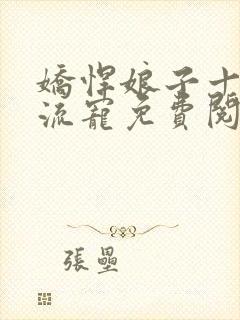 嬌悍娘子十
流寵免費閱
張壘